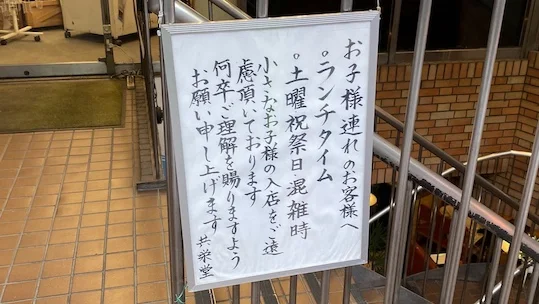 お子様連れのお客様へ
○ランチタイム
○土曜祝祭日・混雑時
小さなお子様の入店をご遠
慮頂いております
何卒ご理解を賜りますよう
お願い申し上げます 共栄堂